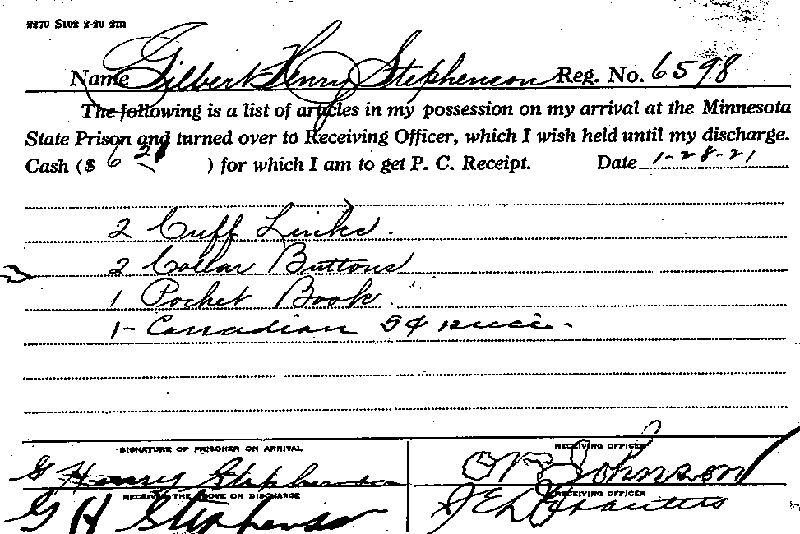 Name Gilbert Henry Stephenson Reg. No. 6598
The following is a list of articles in my possession on my arrival at the Minnesota
State Prison and turned over to Receiving Officer, which I wish held until my discharge.
Cash ($ 6 28 ) for which I am to get P. C. Receipt. Date 1-28-21
2 Cuff Links.
2 Collar Buttons
1 Pocket Book.
1- Canadian 5¢ piece.
SIGNATURE OF PRISONER ON ARRIVAL RECEIVING OFFICER
G Henry Stephenson Johnson
RECEIVING THE ABOVE ON DISCHARGE RECEIVING OFFICER
G H Stephenson